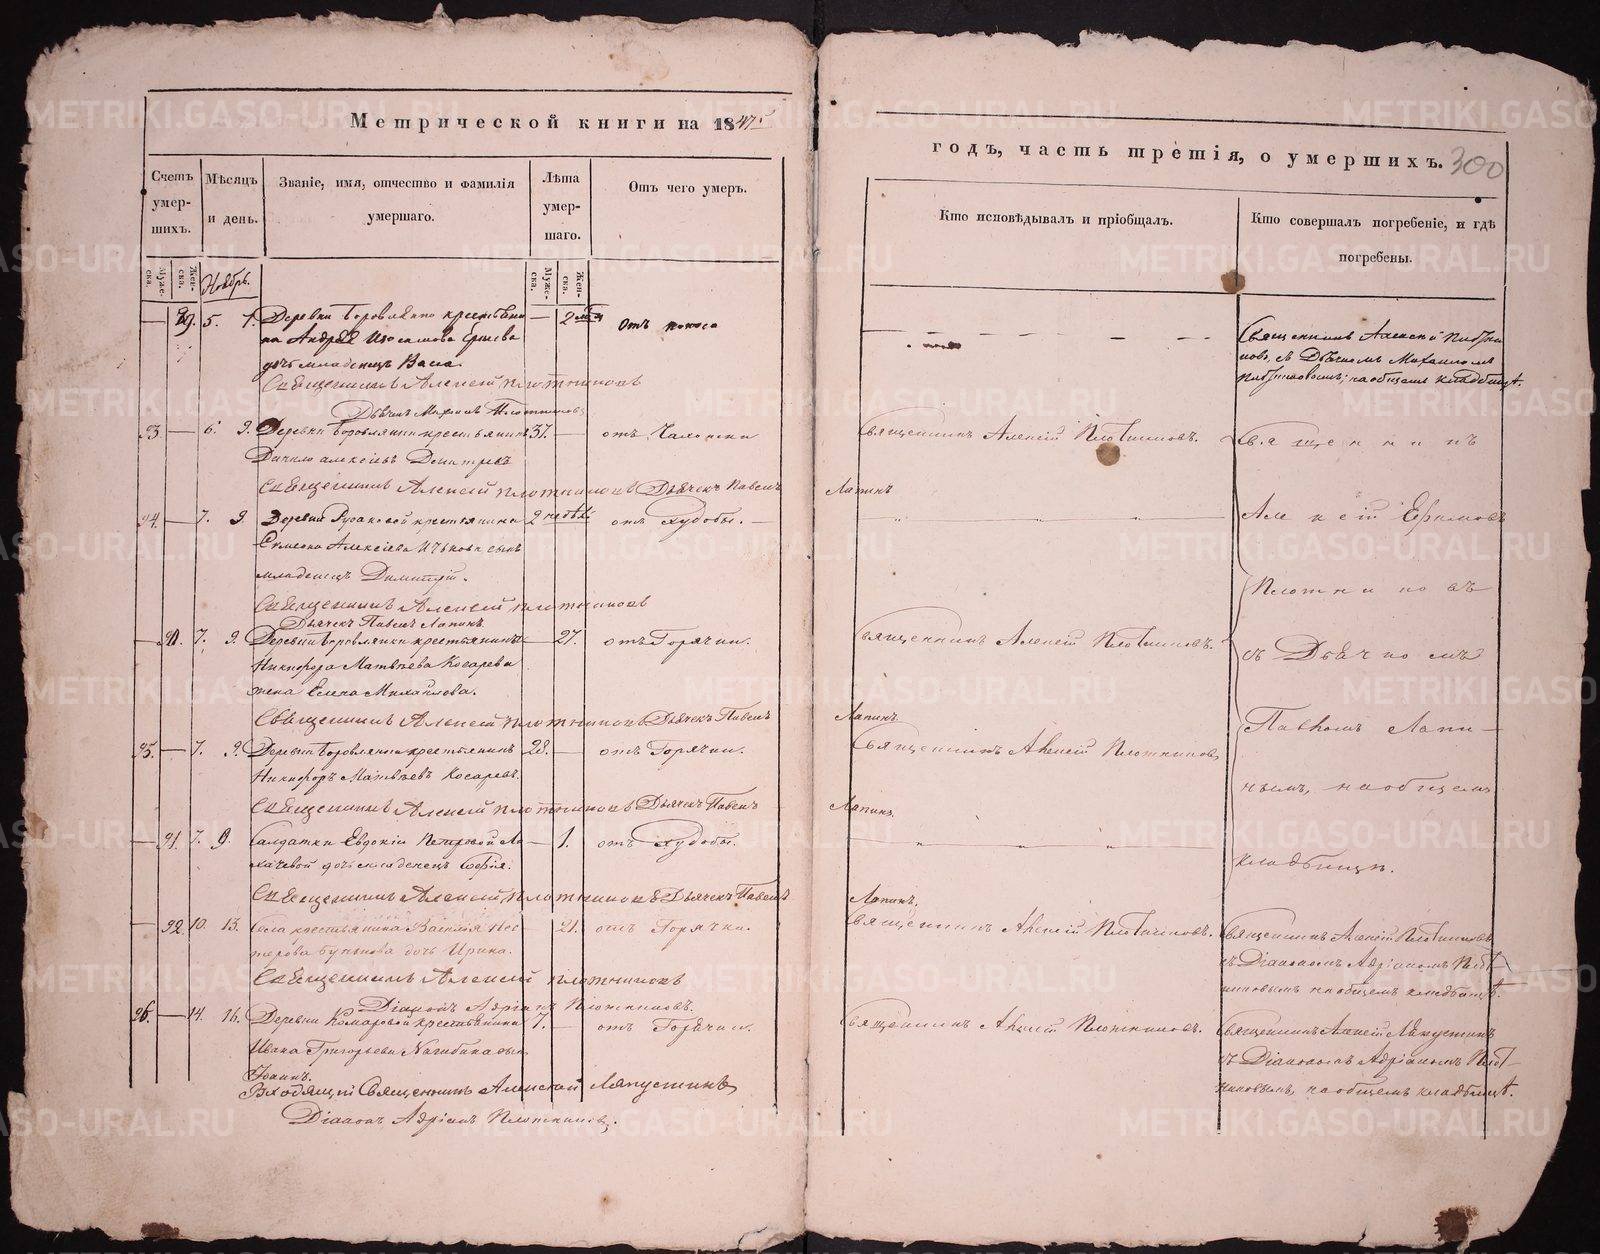 Метрической книги на 1847
Счетъ умер-шихъ.
Мѣсяцъ и день.
Званіе, имя, отчество и фамилія умершаго.
Лѣта умер-шаго.
Отъ чего умеръ.
Муже-ска.
Жен-ска.
Ноябрь.
Муже-ска.
Жен-ска.
89. 5. 7. Деревни Боровлянки крестьяни
на Андрея
дочь младенецъ Васса
отъ поноса
Священникъ Алексей Плотниковъ
Дьячекъ Михаилъ Плотниковъ
93. — 6. 9. Деревни Боровлянки крестьянинъ 37. — отъ Чахотки
Данило Алексіевъ
Священникъ Алексей Плотниковъ Дьячекъ Павелъ
94. — 7. 9. Деревни Русаковой крестьянина 2 недѣл. отъ Худобы. —
Симеона Алексіева сынъ
младенецъ Димитрій.
Священникъ Алексей Плотниковъ
Дьячекъ Павелъ Лапинъ
90. 7. 9. Деревни Боровлянки крестьянина — 27. отъ Горячки.
Никифора Матвѣева Косарева
жена Елена Михайлова.
Священникъ Алексей Плотниковъ Дьячекъ Павелъ
95. — 7. 9. Деревни Боровлянки крестьянинъ 28. — отъ Горячки.
Никифоръ Матвѣевъ Косаревъ.
Священникъ Алексей Плотниковъ Дьячекъ Павелъ
— 91. 7. 9. Салдатки Евдокіи Петровой Ло
хачевой дочь младенецъ Софія. — 1. отъ Худобы.
Священникъ Алексей Плотниковъ Дьячекъ Павелъ
— 92. 10. 13. Села крестьянина Василія Нес
терова дочь Ирина. — 21. отъ Горячки.
Священникъ Алексей Плотниковъ
Діаконъ Адріанъ Плотниковъ.
96. — 14. 16. Деревни Комаровой крестьянина 7. — отъ Горячки.
Ивана Григорьева Нагибина сынъ
Іоаннъ.
Входящій Священникъ Алексей Ляпустинъ
Діаконъ Адріанъ Плотниковъ.
годъ, часть третія, о умершихъ. 300
Кто исповѣдывалъ и пріобщалъ.
Кто совершалъ погребеніе, и гдѣ погребены.
Священникъ Алексій Плотни
ковъ, съ Дьячкомъ Михаиломъ
Плотниковымъ; на общемъ кладбищѣ.
Священникъ Алексій Плотниковъ.
Лапинъ
Священникъ
Алексій Ефимовъ
Плотниковъ
съ Дьячкомъ
Павломъ Лапи-
нымъ, на общемъ
кладбищѣ.
Священникъ Алексій Плотниковъ.
Лапинъ
Священникъ Алексій Плотниковъ
Лапинъ.
Лапинъ.
Священникъ Алексій Плотниковъ.
Священникъ Алексій Плотниковъ
съ Діакономъ Адріаномъ Плот-
никовымъ на общемъ кладбищѣ.
Священникъ Алексій Плотниковъ.
Священникъ Алексій Ляпустинъ
съ Діакономъ Адріаномъ Плот-
никовымъ, на общемъ кладбищѣ.
METRIKI.GASO-URAL.RU